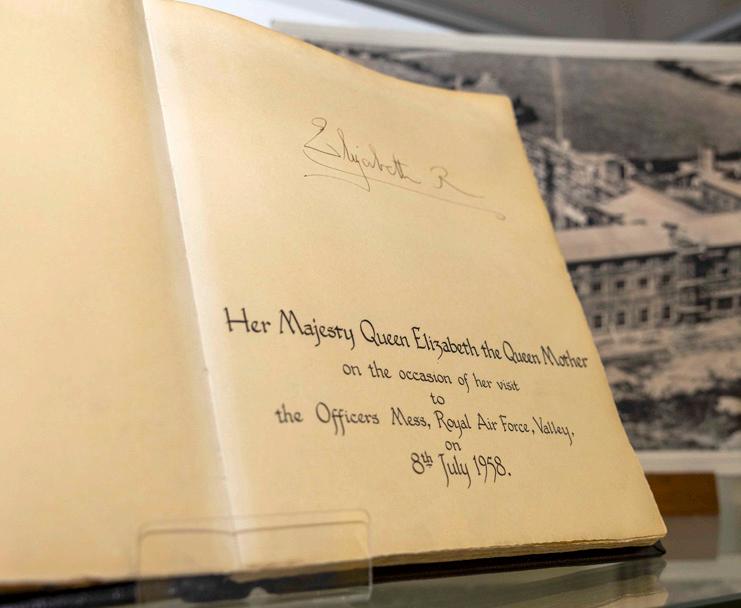 Elizabeth R
Her Majesty Queen Elizabeth the Queen Mother
on the occasion of her visit
to
the Officers Mess, Royal Air Force, Valley,
on
8th July 1958.